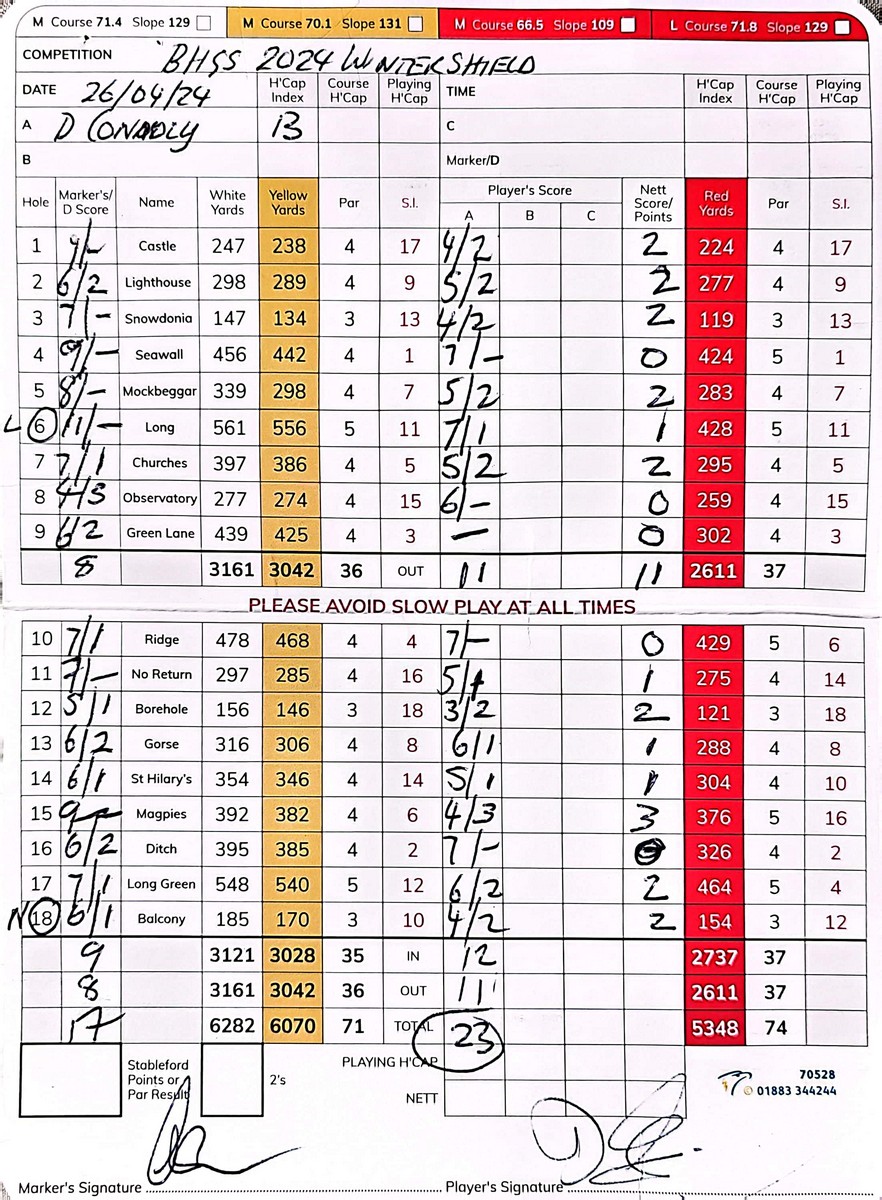 M Course 71.4 Slope 129 M Course 70.1 Slope 131 M Course 66.5 Slope 109 L Course 71.8 Slope 129
COMPETITION BHGS 2024 WINTER SHIELD
DATE 26/04/24 H'Cap Index Course H'Cap Playing H'Cap TIME H'Cap Index Course H'Cap Playing H'Cap
A D CONNOLLY 13 C
B Marker/D
Hole Marker's/ D Score Name White Yards Yellow Yards Par S.I. Player's Score A B C Nett Score/ Points Red Yards Par S.I.
1 Castle 247 238 4 17 4/2 2 224 4 17
2 6/2 Lighthouse 298 289 4 9 5/2 2 277 4 9
3 7/- Snowdonia 147 134 3 13 4/2 2 119 3 13
4 9/- Seawall 456 442 4 1 7/- 0 424 5 1
5 8/- Mockbeggar 339 298 4 7 5/2 2 283 4 7
L 6 11/- Long 561 556 5 11 7/1 1 428 5 11
7 7/1 Churches 397 386 4 5 5/2 2 295 4 5
8 4/3 Observatory 277 274 4 15 6/- 0 259 4 15
9 6/2 Green Lane 439 425 4 3 - 0 302 4 3
8 3161 3042 36 OUT 11 11 2611 37
PLEASE AVOID SLOW PLAY AT ALL TIMES
10 7/1 Ridge 478 468 4 4 7/- 0 429 5 6
11 7/- No Return 297 285 4 16 5/1 1 275 4 14
12 5/1 Borehole 156 146 3 18 3/2 2 121 3 18
13 6/2 Gorse 316 306 4 8 6/1 1 288 4 8
14 6/1 St Hilary's 354 346 4 14 5/1 1 304 4 10
15 9 - Magpies 392 382 4 6 4/3 3 376 5 16
16 6/2 Ditch 395 385 4 2 7/- 326 4 2
17 7/1 Long Green 548 540 5 12 6/2 2 464 5 4
N 18 6/1 Balcony 185 170 3 10 4/2 2 154 3 12
9 3121 3028 35 IN 12 2737 37
8 3161 3042 36 OUT 11 2611 37
17 6282 6070 71 TOTAL 23 5348 74
Stableford Points or Par Result 2's PLAYING H'CAP
NETT
70528
© 01883 344244
Marker's Signature Player's Signature